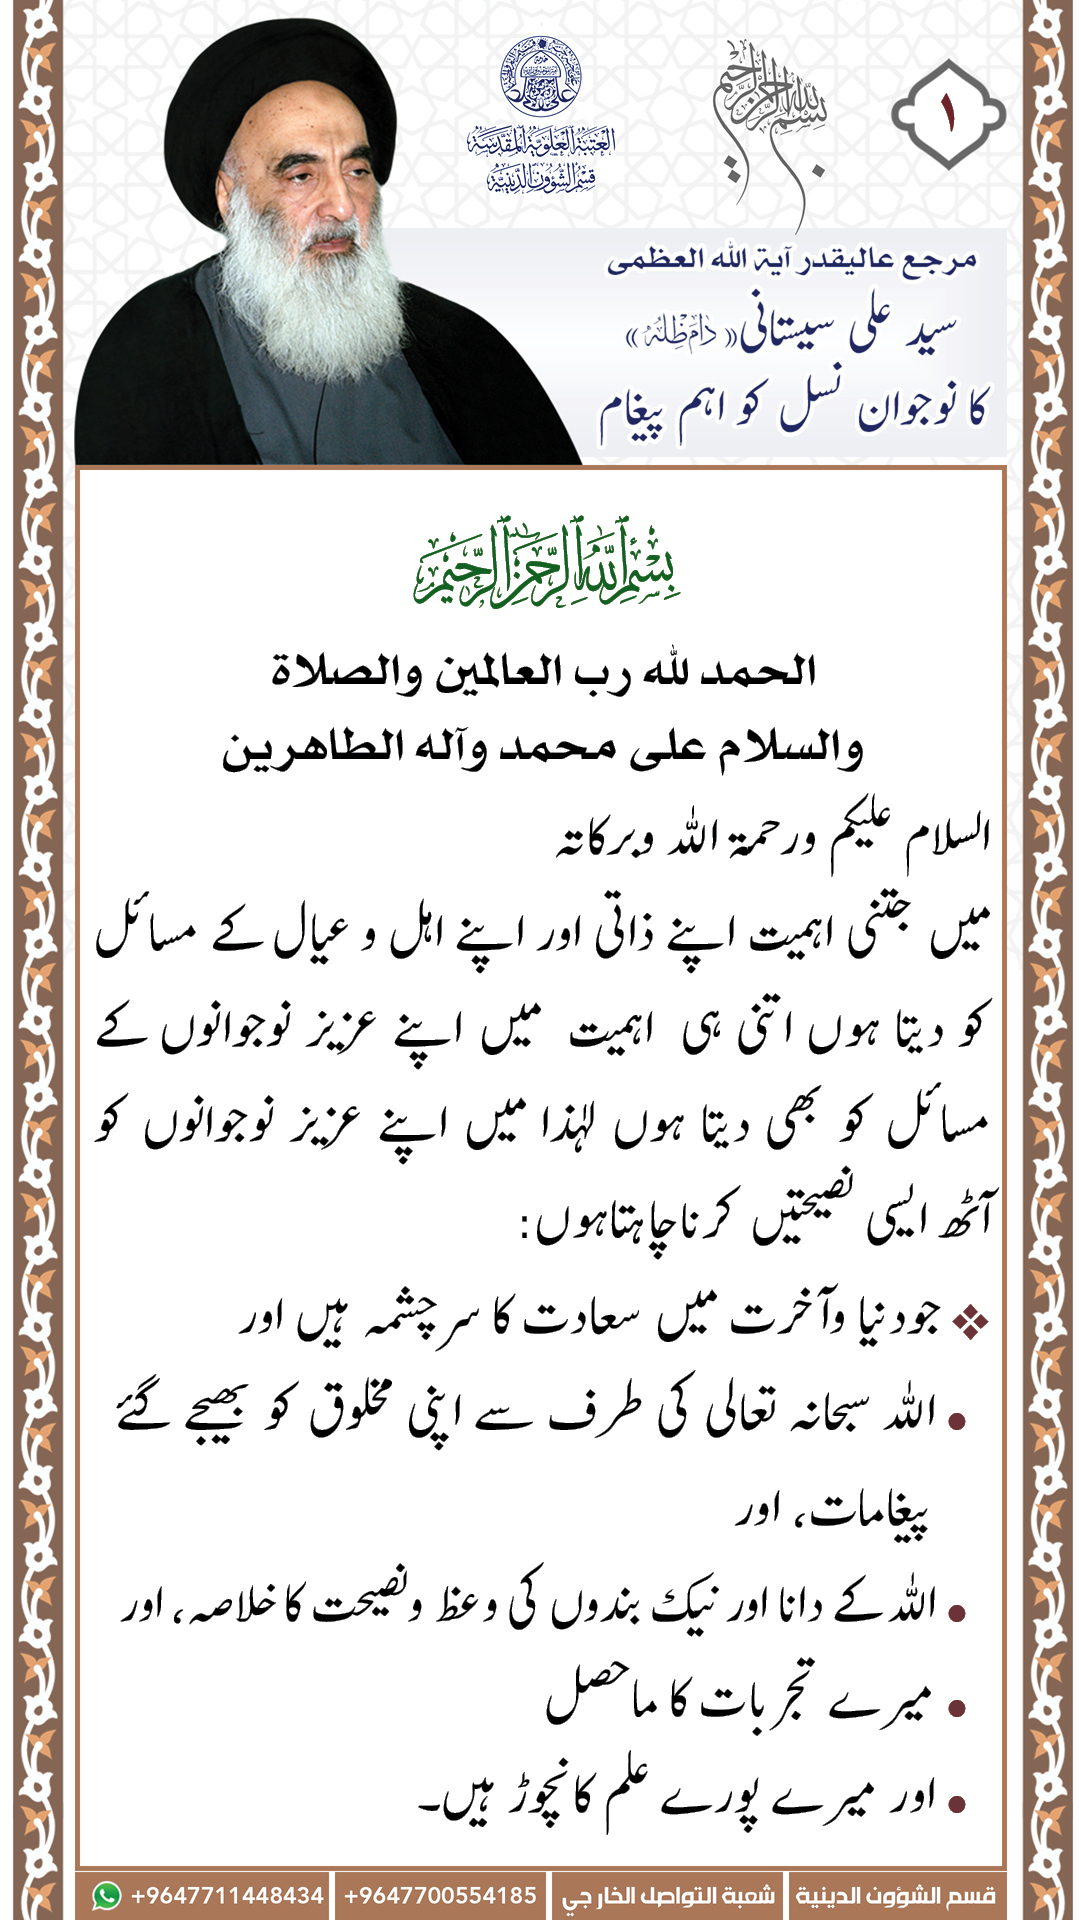 ١
بسم الله الرحمن الرحيم
العتبة العلوية المقدسة
قسم الشؤون الدينية
مرجع عالیقدر آیة الله العظمی
سید علی سیستانی «دام ظله»
کا نوجوان نسل کو اہم پیغام
بِسْمِ اللَّهِ الرَّحْمَٰنِ الرَّحِيمِ
الحمد لله رب العالمين والصلاة
والسلام على محمد وآله الطاهرين
السلام علیکم ورحمۃ اللہ وبرکاتہ
میں جتنی اہمیت اپنے ذاتی اور اپنے اہل و عیال کے مسائل
کو دیتا ہوں اتنی ہی اہمیت میں اپنے عزیز نوجوانوں کے
مسائل کو بھی دیتا ہوں لہٰذا میں اپنے عزیز نوجوانوں کو
آٹھ ایسی نصیحتیں کرناچاہتاہوں:
❖ جودنیا وآخرت میں سعادت کا سرچشمہ ہیں اور
• اللہ سبحانہ تعالی کی طرف سے اپنی مخلوق کو بھیجے گئے
پیغامات، اور
• اللہ کے دانا اور نیک بندوں کی وعظ ونصیحت کاخلاصہ، اور
• میرے تجربات کا ماحصل
• اور میرے پورے علم کانچوڑ ہیں۔
قسم الشؤون الدينية
شعبة التواصل الخارجي
+9647700554185
+9647711448434